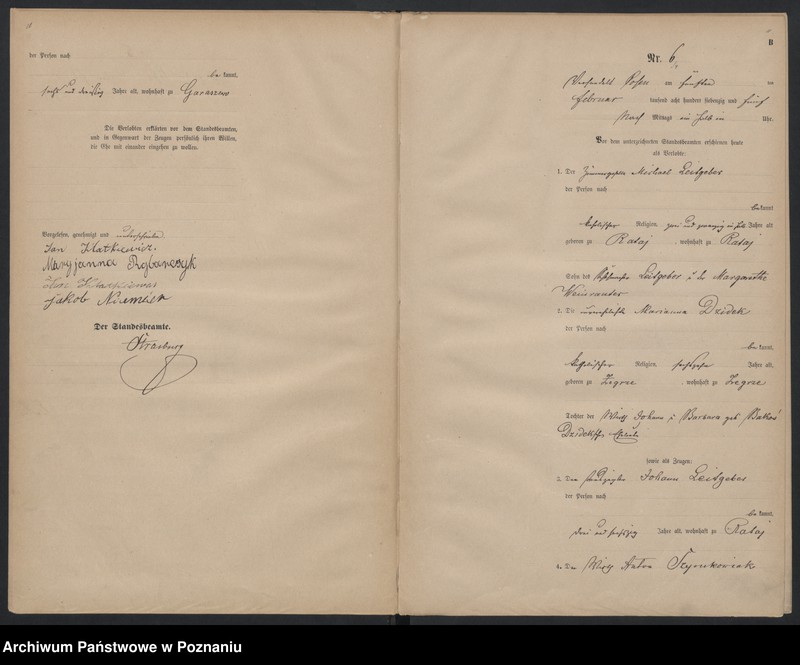 der Person nach
be kannt,
sechs und dreißig Jahre alt, wohnhaft zu Garaszewo
Die Verlobten erklärten vor dem Standesbeamten,
und in Gegenwart der Zeugen persönlich ihren Willen,
die Ehe mit einander eingehen zu wollen.
Vorgelesen, genehmigt und unterschrieben
Jan
Maryjanna
Jakob
Der Standesbeamte.
Strasburg
8
Nr. 6.
Verhandelt Posen am fünften
Februar tausend acht hundert siebenzig und fünf
Nach Mittags um halb ein Uhr.
Vor dem unterzeichneten Standesbeamten erschienen heute
als Verlobte:
1. Der Zimmergeselle Michael Leitgeber
der Person nach
be kannt
katholischer Religion, zwei und zwanzig ein halb Jahre alt
geboren zu Rataj, wohnhaft zu Rataj
Sohn des Leitgeber u. der Margarethe
Weinranter
2. Die unverehelichte Marianna Dzidek
der Person nach
be kannt,
katholischer Religion, sechszehn Jahre alt,
geboren zu Zegrze, wohnhaft zu Zegrze
Tochter der Wirth Johann u. Barbara geb.
Dzidekschen Eheleute
sowie als Zeugen:
3. Den Johann Leitgeber
der Person nach
be kannt,
drei und sechszig Jahre alt, wohnhaft zu Rataj
4. Den Wirth Anton
Archiwum Państwowe w Poznaniu